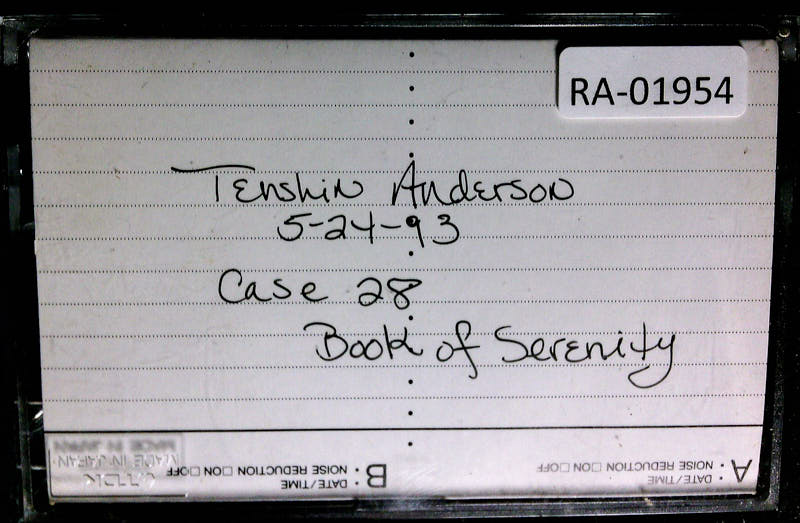 RA-01954
Tenshin Anderson
5-24-93
Case 28
Book of Serenity
A • DATE/TIME
• NOISE REDUCTION □ ON □ OFF
B • DATE/TIME
• NOISE REDUCTION □ ON □ OFF
TDK
MADE IN JAPAN